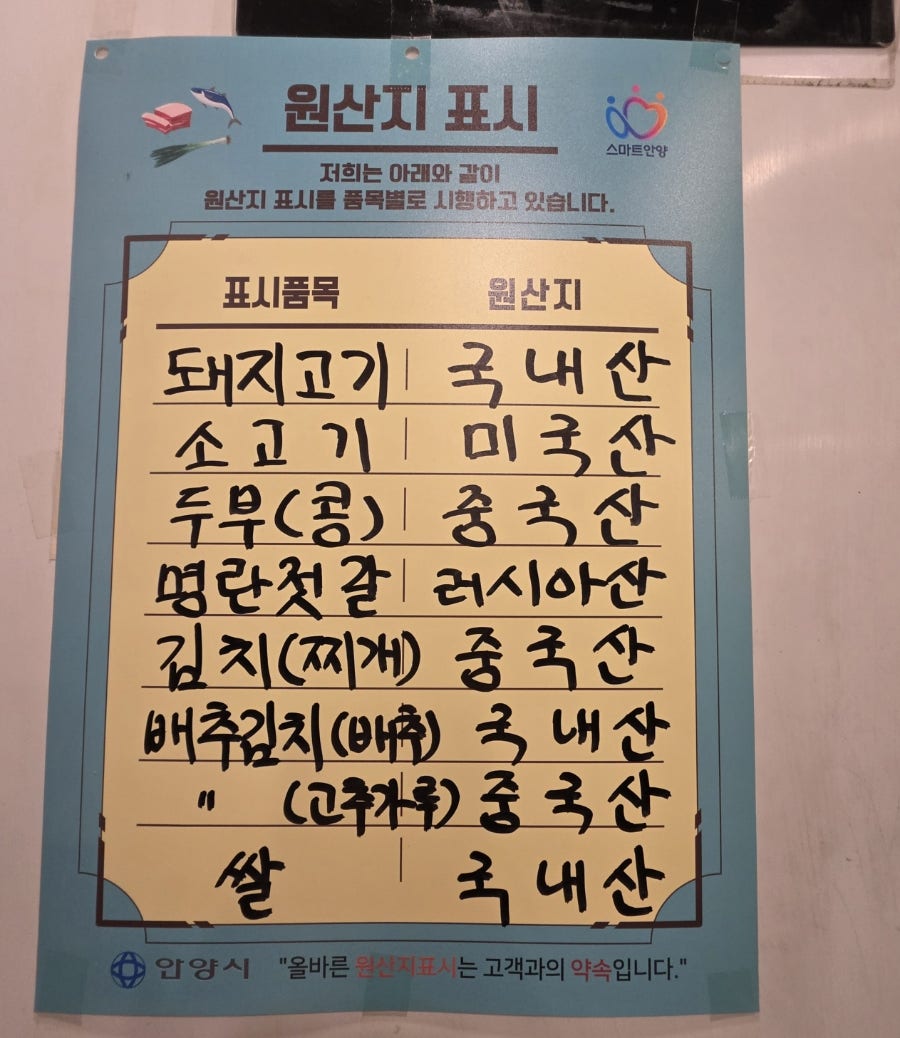 원산지 표시
스마트안양
저희는 아래와 같이
원산지 표시를 품목별로 시행하고 있습니다.
표시품목 원산지
돼지고기 국내산
소고기 미국산
두부(콩) 중국산
명란젓갈 러시아산
김치(찌개) 중국산
배추김치(배추) 국내산
" (고추가루) 중국산
쌀 국내산
안양시 "올바른 원산지표시는 고객과의 약속입니다."